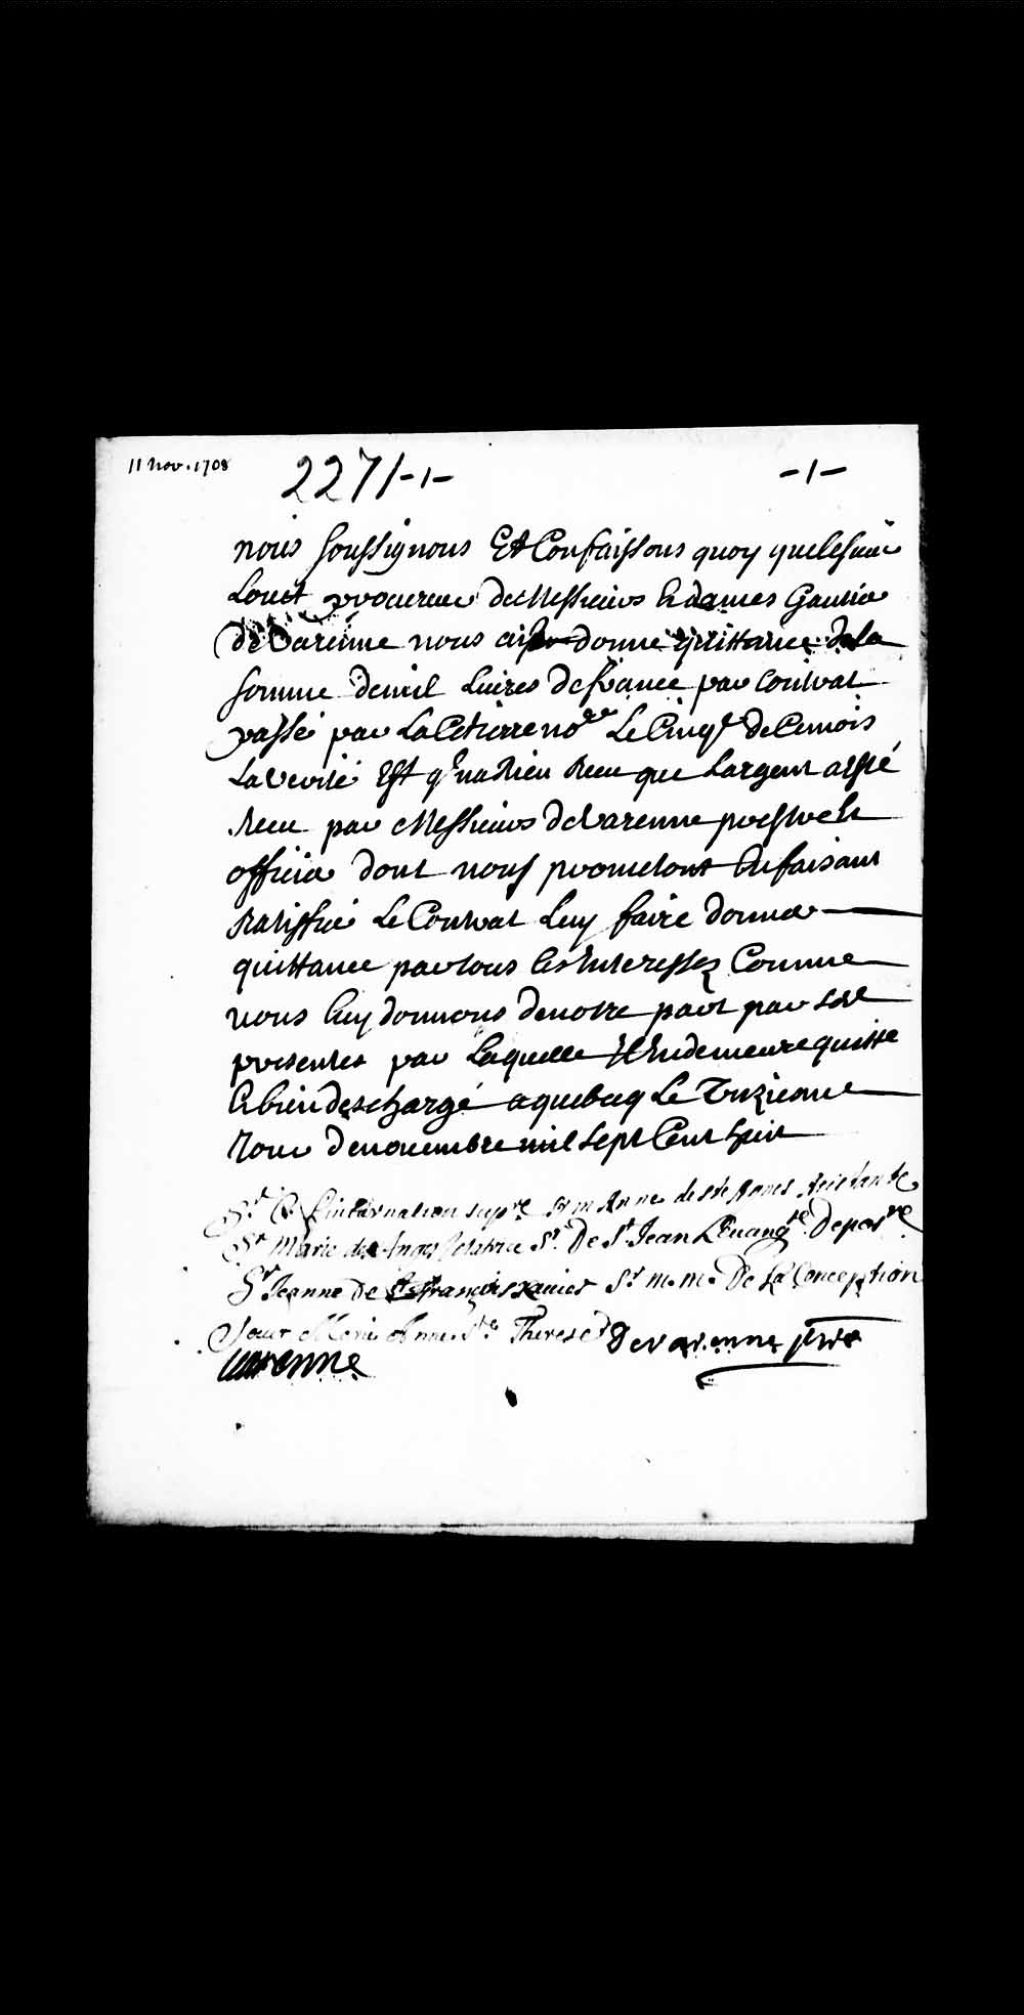 11 nov. 1708 2271-1- -1-
nous soussignous Et Confaissons quoy que le sieur
Louet procureur de Messieurs & dames Gautier
de Varenne nous ai donné quittance de la
somme de mil Livres de france par contrat
passé par La Cetierre no.re Le Cinq.e de Ce mois
La verité Est q'il na Rien Receu que Largent a esté
Receu par Messieurs de Varenne prestre &
officier dont nous prometons En faisant
Ratiffier Le Contrat Luy faire donner
quittance par tous les Interessez Comme
nous luy donnons de notre part par
presentes par Laquelle Il En demeure quitte
& bien deschargé a quebecq Le Onzieme
Jour de novembre mil sept Cent huit
Sr C Lincarnation sup.re Sr m Anne de ste Agnes Assistante
Sr Marie des Anges Zelatrice Sr De St Jean LEuang.te Depos.re
Sr Jeanne De St françois xauier Sr m. m. De La Conception
Soeur Marie Anne Ste Therese Devarenne ptre
varenne